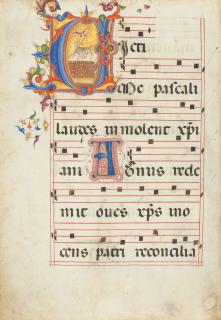 Victi
me pascali
laudes inmolent xpi
ani Agnus rede
mit oves xps ino
cens patri reconcilia